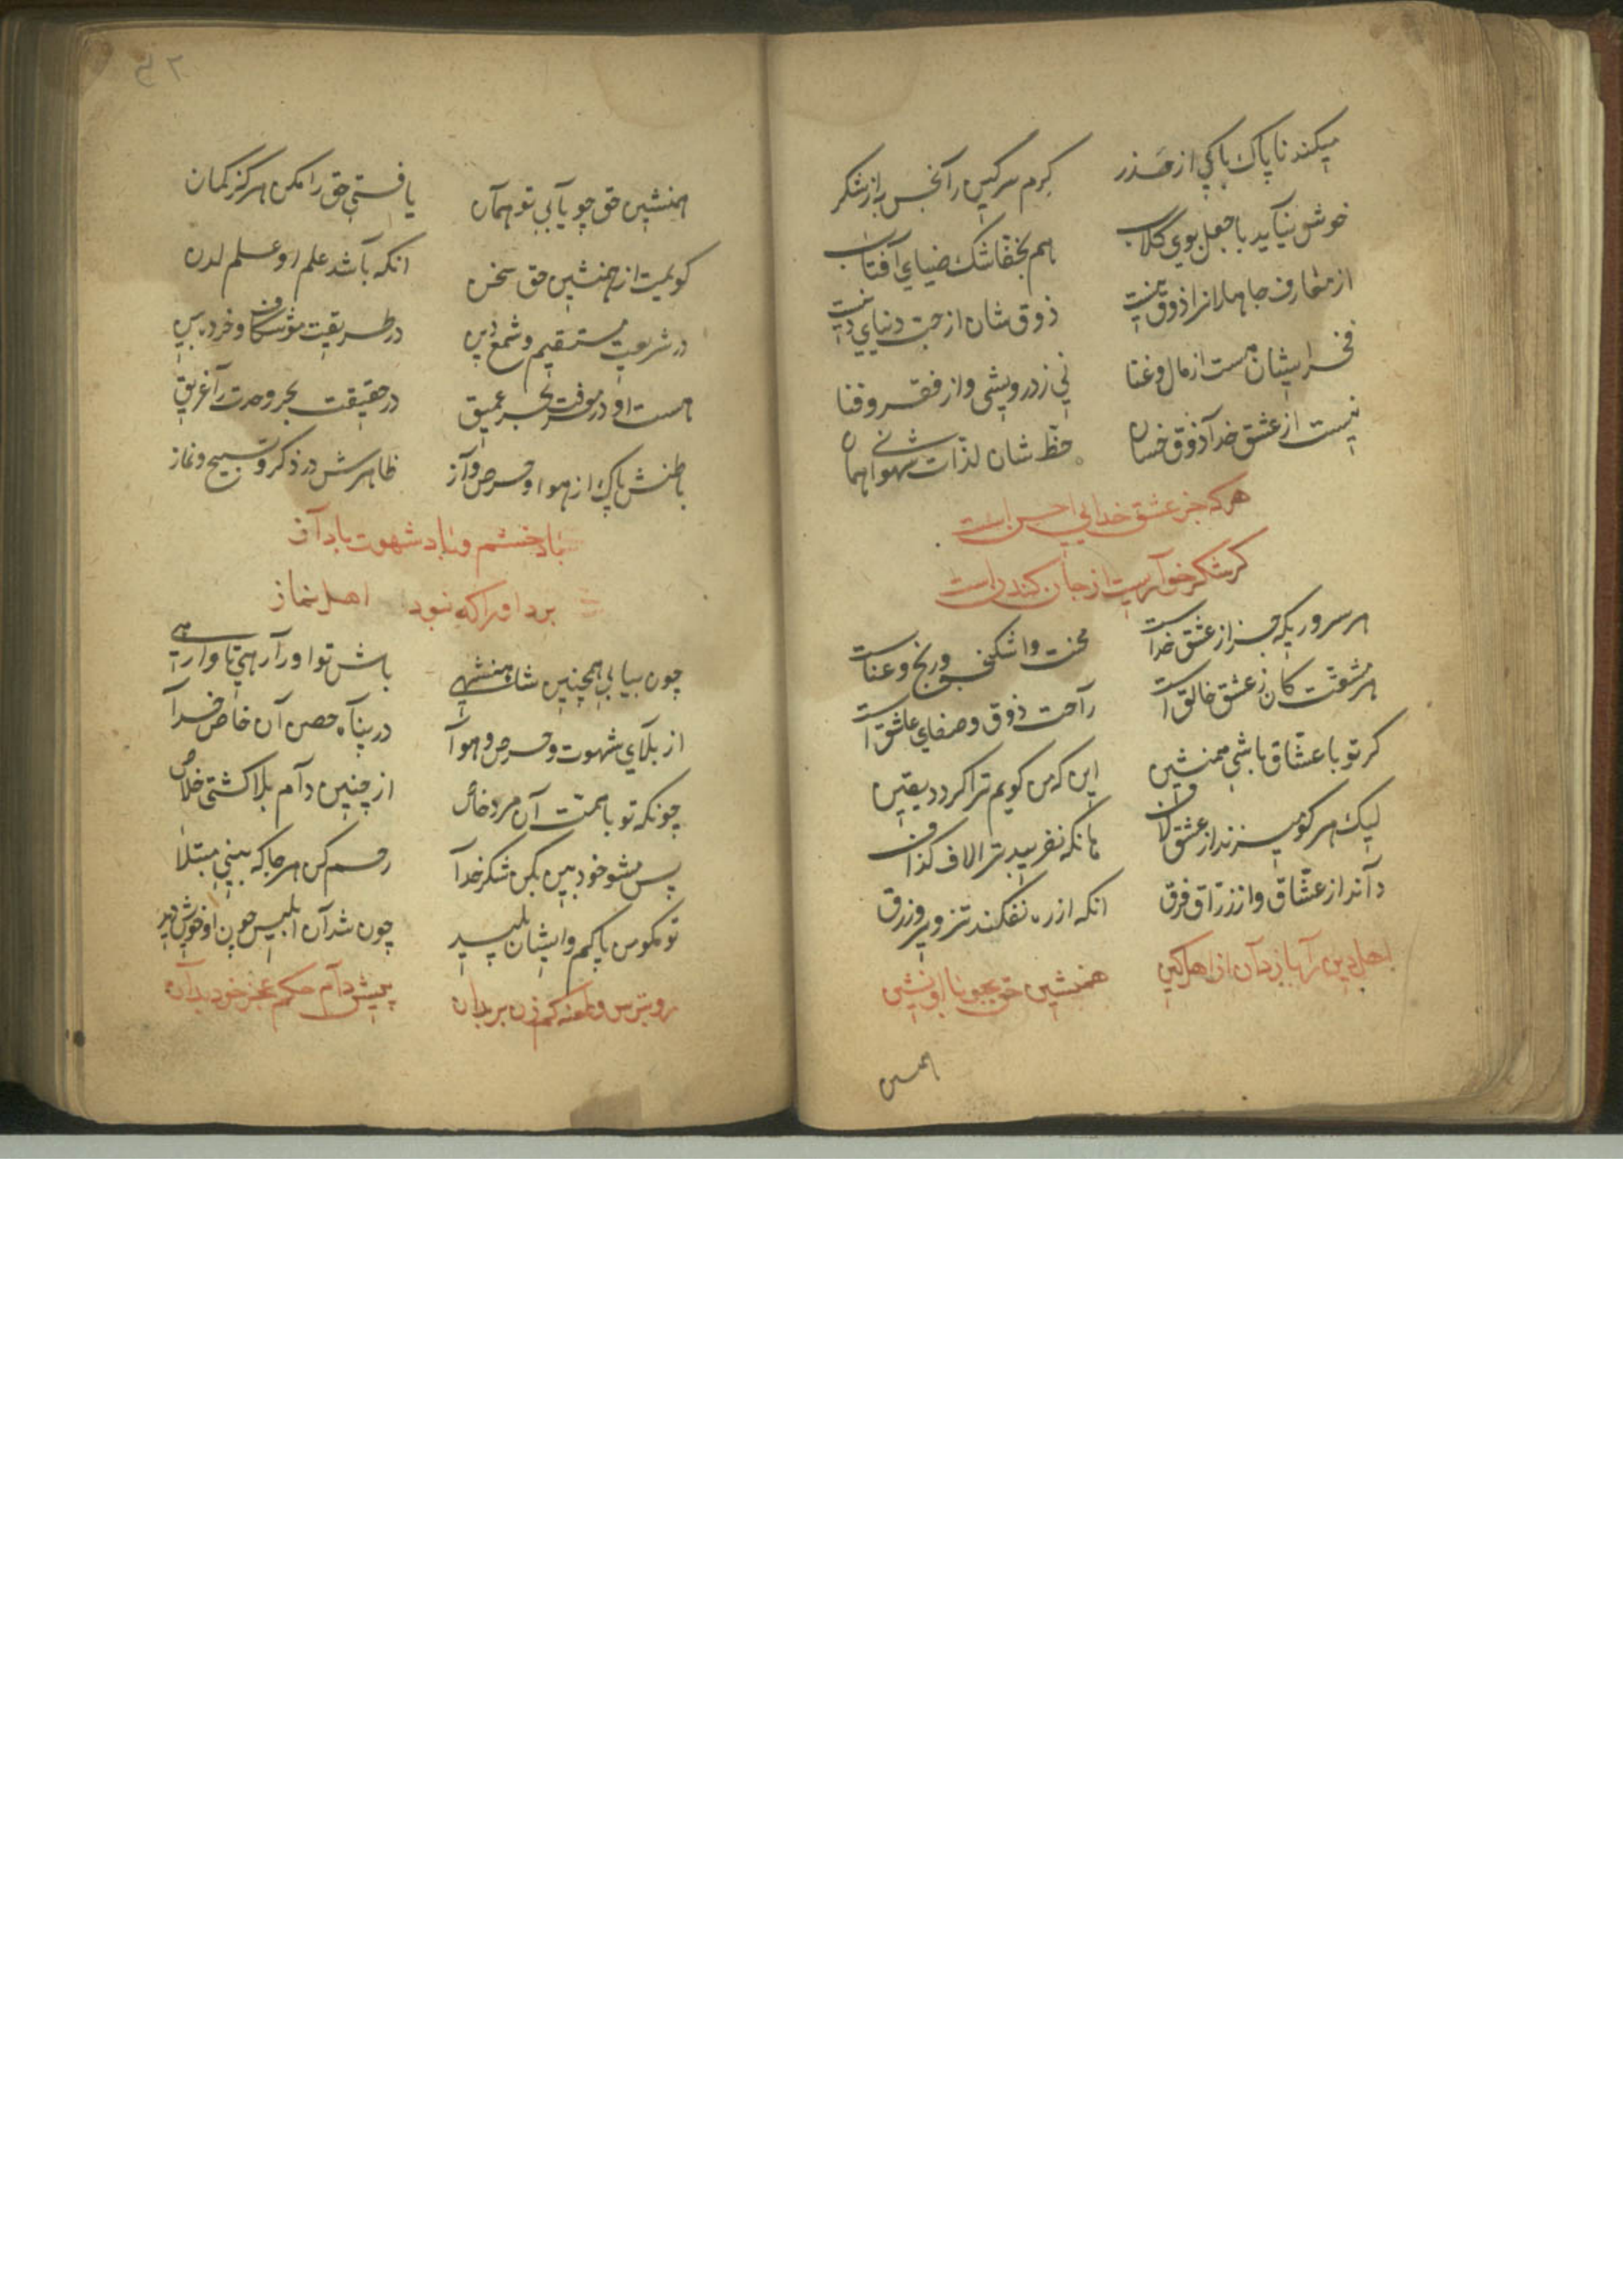 میکند ناپاک پاکی از حذر    کرم سرکین را نجس به از شکر
خوش نیاید با جعل بوی کلاب    هم بخفاشک ضیای آفتاب
از معارف جاهلانرا ذوق نیست    ذوق شان از حب دنیای دنیست
فخر ایشان هست از مال و غنا    نی ز درویشی و از فقر و فنا
نیست از عشق خدا ذوق خسان    حظ شان لذات شهوانی همان
هرکه جز عشق خدایی احسن است
کر شکر خواریست از جان کندن است
هر سروریکه جز از عشق خداست    محنت و اشکنجه و رنج و عناست
هر مشقت کان ز عشق خالق است    راحت ذوق و صفای عاشق است
کر تو با عشاق باشی همنشین    این که من کویم ترا کردد یقین
لیک هر کو میزند از عشق لاف    هانکه نفریبد ترا لاف کذاف
داند از عشاق و از زراق فرق    انکه از ره نفکند تزویر و زرق
اهل دین را باز دان از اهل کین    همنشین حق بجو با او نشین
همنشین
۵۲
همنشین حق چو یابی تو همان    یافتی حق را مکن هرکز کمان
کویمت از همنشین حق سخن    انکه باشد علم او علم لدن
در شریعت مستقیم و شمع دین    در طریقت موشکاف و خرده بین
هست او در معرفت بحر عمیق    در حقیقت بحر وحدت را غریق
باطنش پاک از هوا و حرص و آز    ظاهرش در ذکر و تسبیح و نماز
باد خشم و باد شهوت باد آز
برد اورا که نبود اهل نماز
چون بیابی همچنین شاهنشهی    باش تو اورا رهی تا وارهی
از بلای شهوت و حرص و هوا    در پناه حصن آن خاص خدا
چونکه تو با همت آن مرد خاص    از چنین دام بلا کشتی خلاص
پس مشو خودبین بکن شکر خدا    رحم کن هر جا که بینی مبتلا
تو مکو من پاکم و ایشان پلید    چون شد آن ابلیس چون او خویش دید
رو بترس و طعنه کم زن بر بدان    پیش دام حکم عجز خود بدان